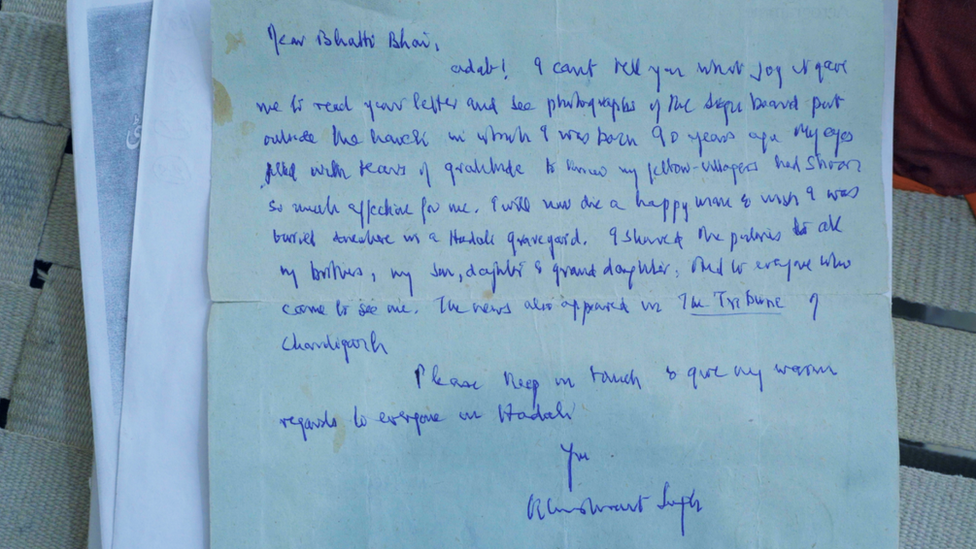 Dear Bhatti Bhai,
adab! I can't tell you what joy it gave
me to read your letter and see photographs of the sign board put
outside the haveli in which I was born 90 years ago. My eyes
filled with tears of gratitude to know my fellow-villagers had shown
so much affection for me. I will now die a happy man & wish I was
buried in a Hadali graveyard. I showed the pictures to all
my brothers, my son, daughter & grand daughter, And to everyone who
came to see me. The news also appeared in The Tribune of
Chandigarh
Please keep in touch & give my warm
regards to everyone in Hadali
Yrs
Khushwant Singh